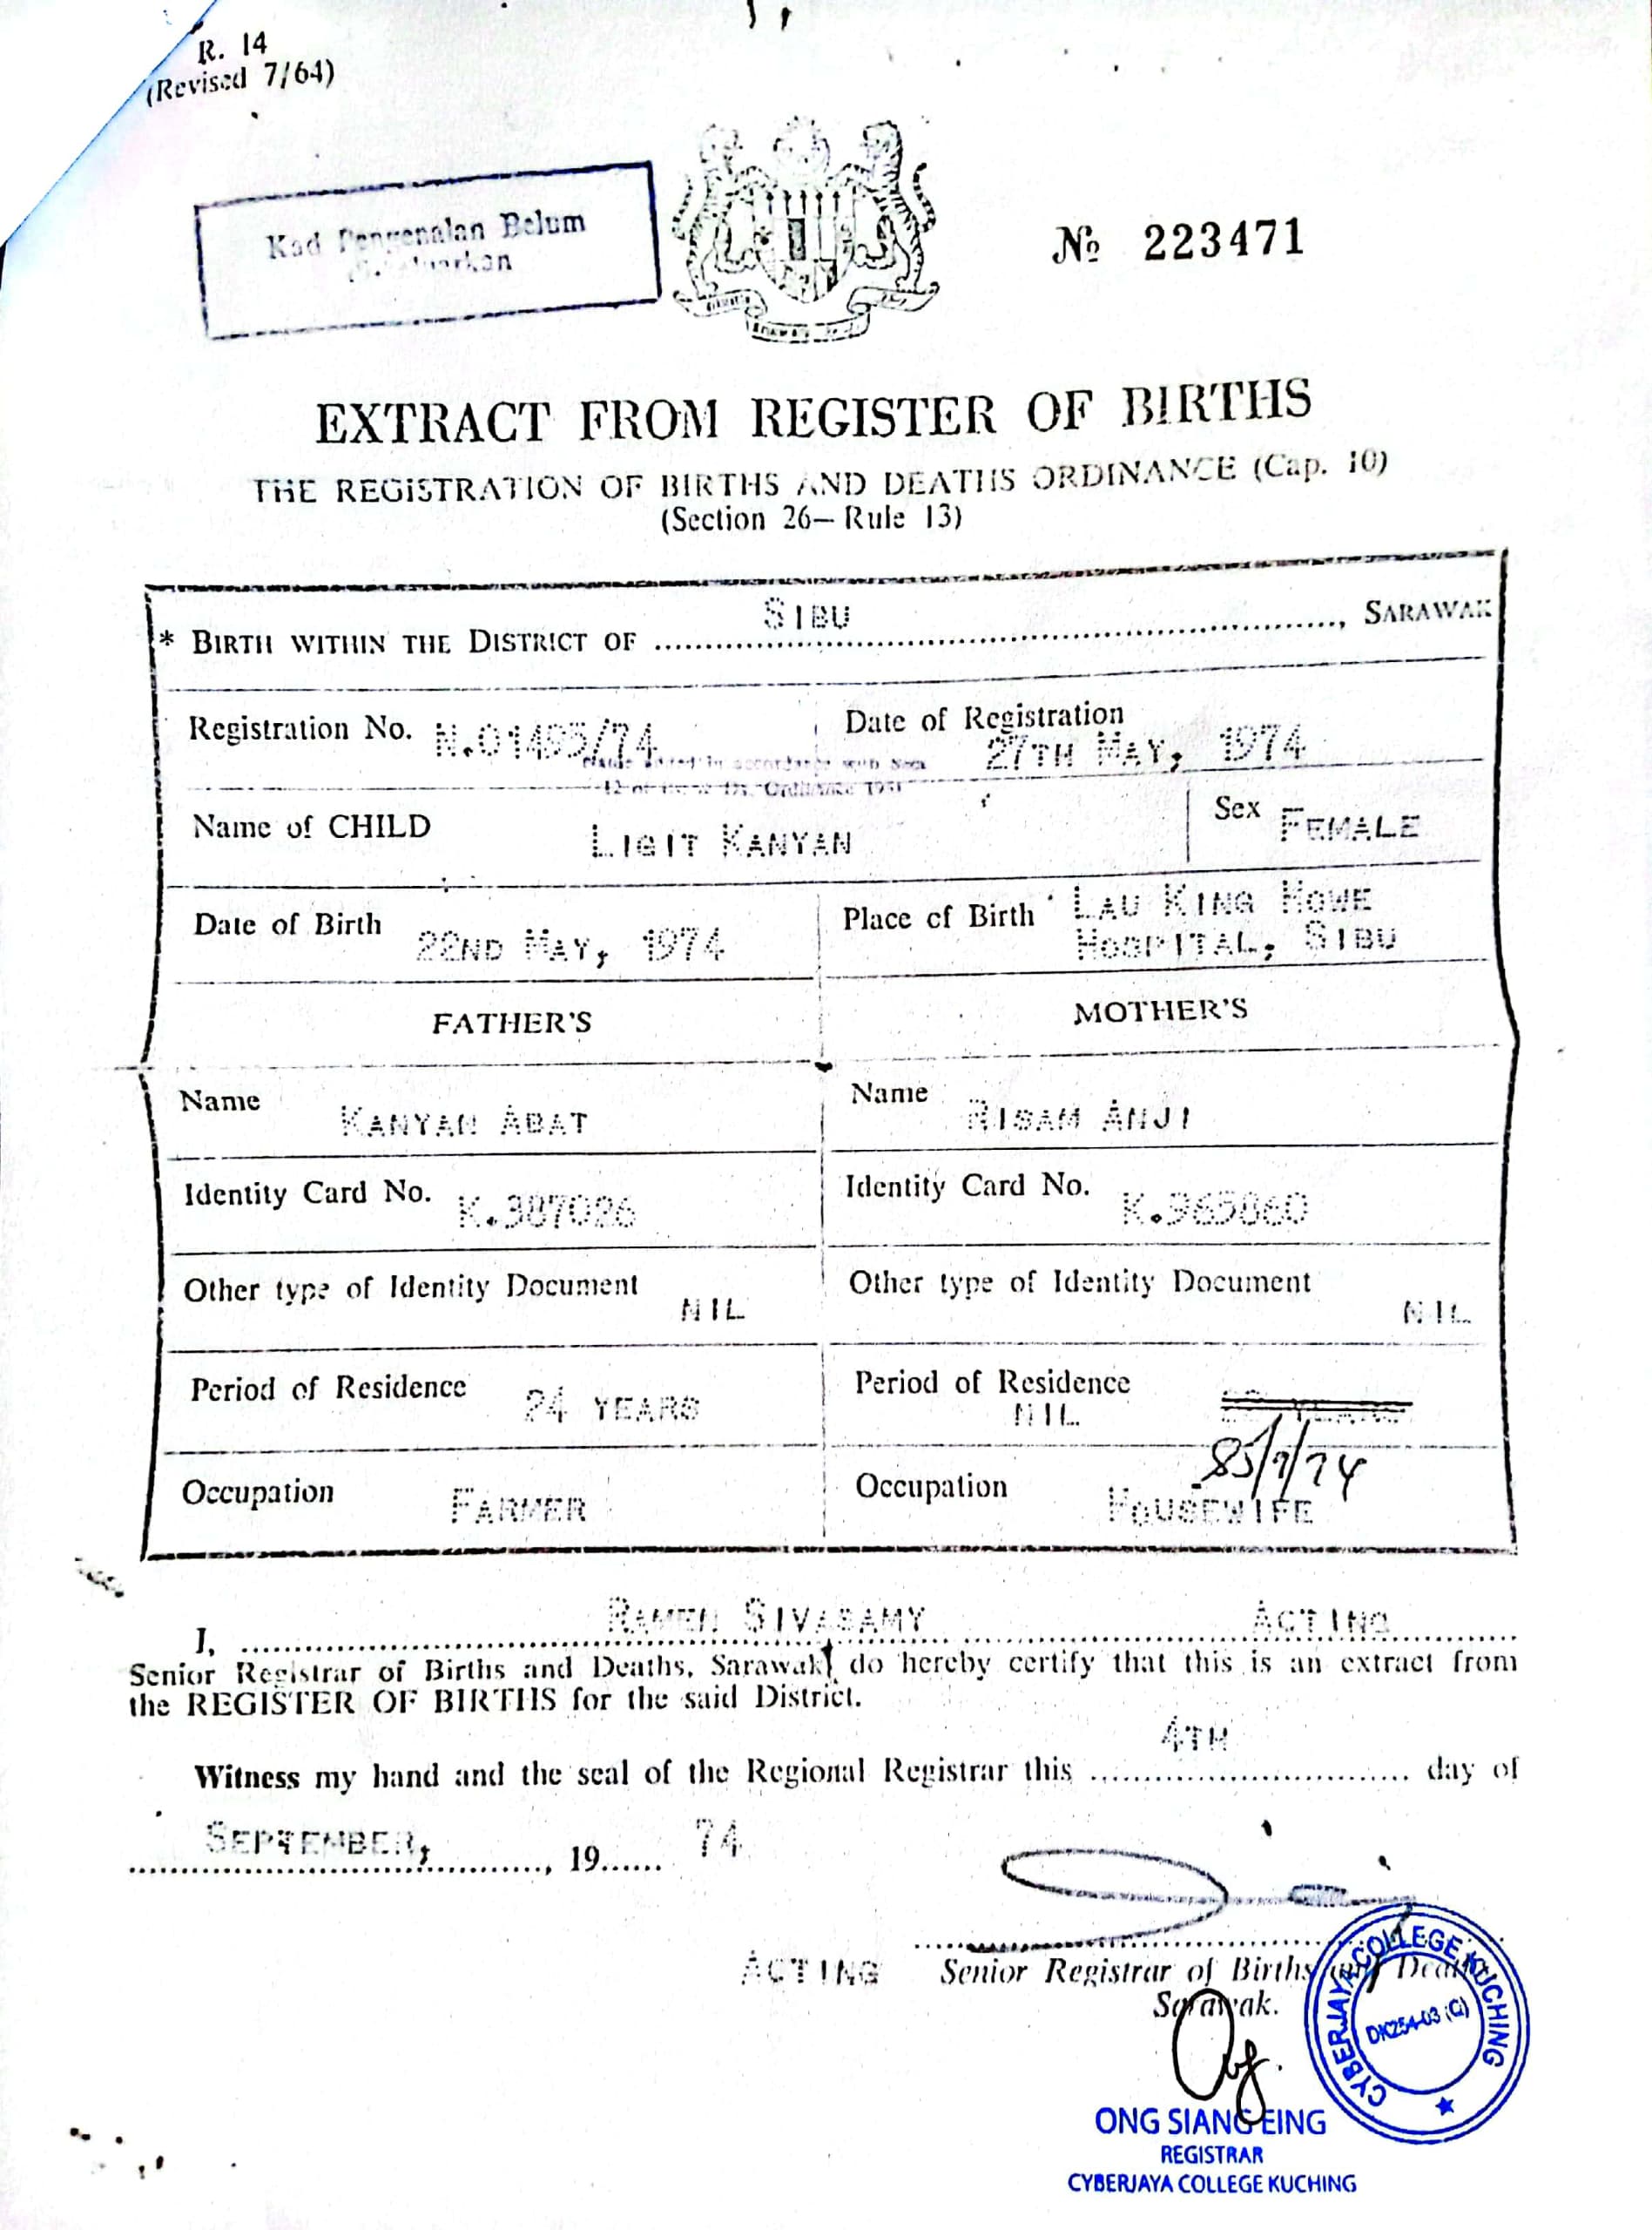 R. 14
(Revised 7/64)
Kad Pengenalan Belum
№ 223471
EXTRACT FROM REGISTER OF BIRTHS
THE REGISTRATION OF BIRTHS AND DEATHS ORDINANCE (Cap. 10)
(Section 26— Rule 13)
SIBU
* BIRTH WITHIN THE DISTRICT OF ................, SARAWAK
Registration No. N.01495/74 Date of Registration
27TH MAY, 1974
Name of CHILD LIGIT KANYAN Sex FEMALE
Date of Birth 22ND MAY, 1974 Place of Birth LAU KING HOWE
HOSPITAL, SIBU
FATHER'S MOTHER'S
Name KANYAN ABAT Name RISAM ANJI
Identity Card No. K.387026 Identity Card No. K.965860
Other type of Identity Document NIL Other type of Identity Document NIL
Period of Residence 24 YEARS Period of Residence
NIL
Occupation FARMER Occupation HOUSEWIFE
RAMEN SIVASAMY ACTING
I, ................
Senior Registrar of Births and Deaths, Sarawak, do hereby certify that this is an extract from
the REGISTER OF BIRTHS for the said District.
4TH
Witness my hand and the seal of the Regional Registrar this ................ day of
SEPTEMBER, ................, 19...... 74
ACTING Senior Registrar of Births and Deaths
Sarawak.
CYBERJAYA COLLEGE KUCHING
DK254-03 (Q)
ONG SIANG EING
REGISTRAR
CYBERJAYA COLLEGE KUCHING